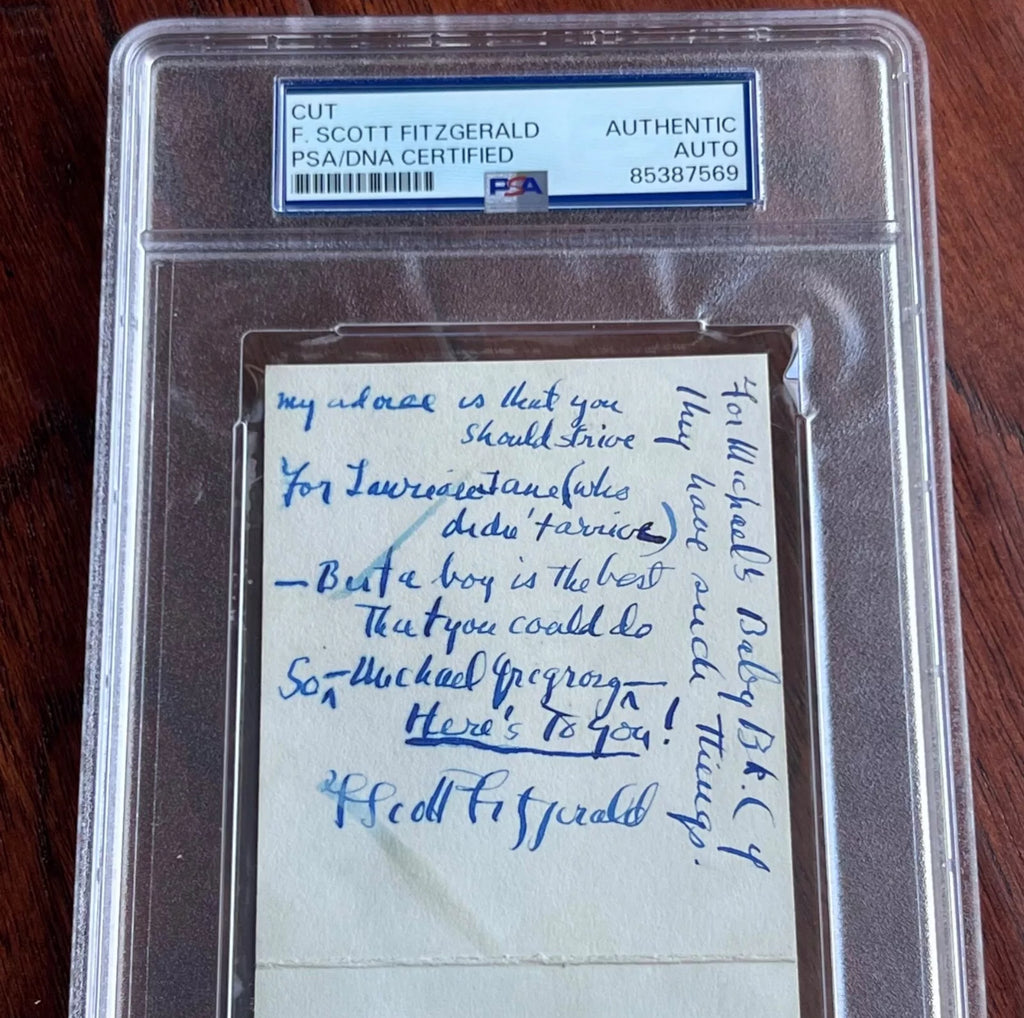 CUT
F. SCOTT FITZGERALD
PSA/DNA CERTIFIED
AUTHENTIC
AUTO
85387569
PSA
my advice is that you
should strive
For Jane (who
didn't arrive)
— But a boy is the best
That you could do
So — Michael Gregory —
Here's To You!
F Scott Fitzgerald
For Michael's Baby Bk. (if
they have such Things.